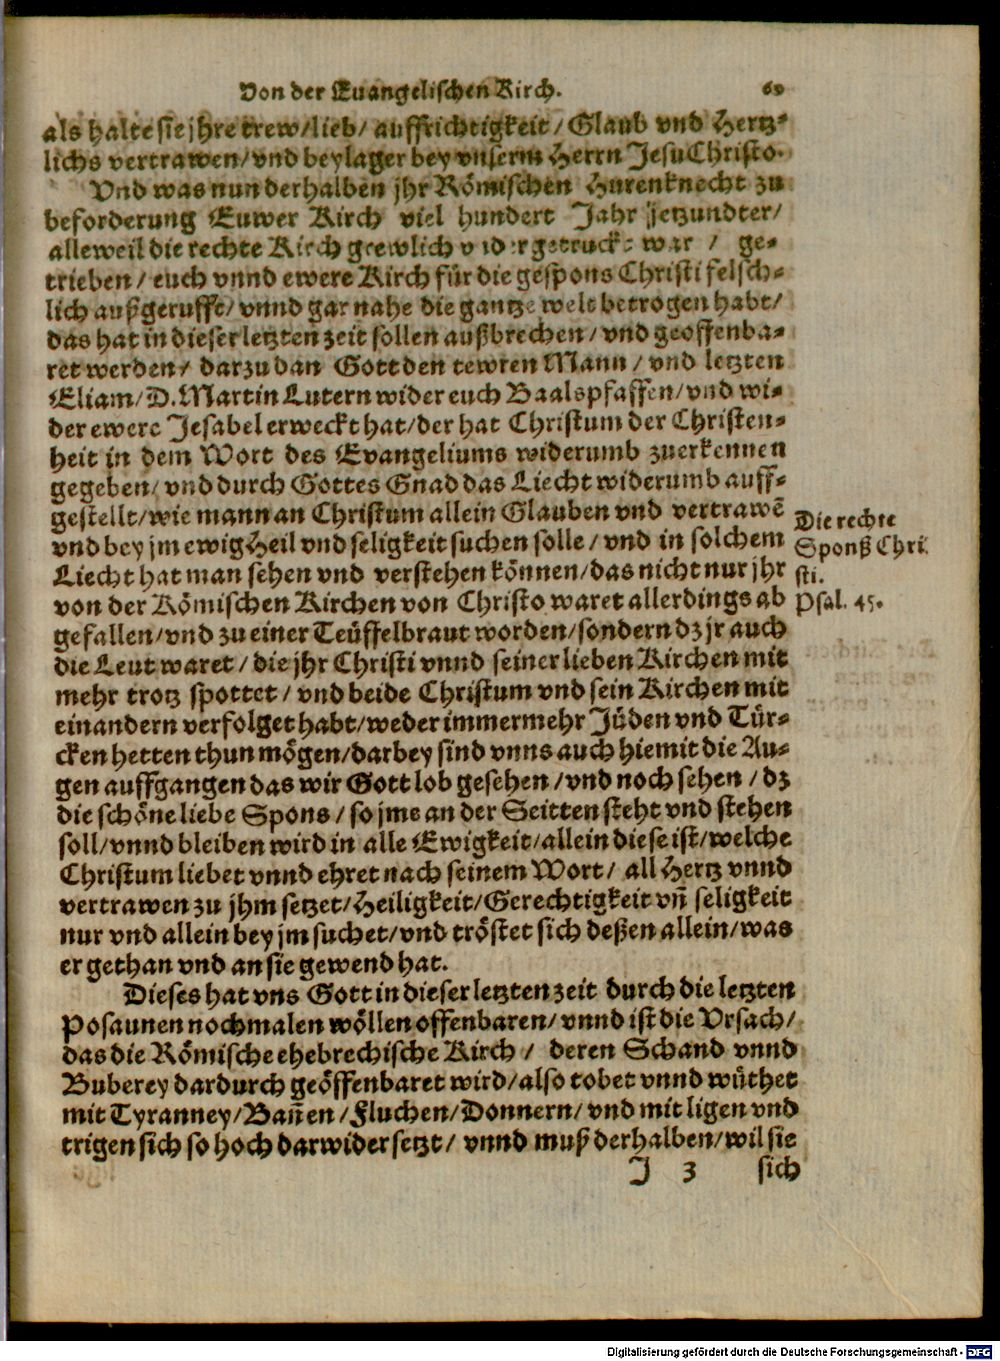 Von der Euangelischen Kirch. 69
als halte sie jhre trew/lieb/ auffrichtigkeit/ Glaub vnd Hertz-
lichs vertrawen/vnd beylager bey vnserm Herrn Jesu Christo.
Vnd was nun derhalben jhr Römischen Hurenknecht zu
beforderung Euwer Kirch viel hundert Jahr jetzundter/
alleweil die rechte Kirch grewlich vnder getruckt war / ge-
trieben/ euch vnnd ewere Kirch für die gespons Christi felsch-
lich außgerufft/ vnnd gar nahe die gantze welt betrogen habt/
das hat in dieser letzten zeit sollen außbrechen/ vnd geoffenba-
ret werden/ darzu dan Gott den tewren Mann/ vnd letzten
Eliam/D. Martin Lutern wider euch Baalspfaffen/vnd wi-
der ewere Jesabel erweckt hat/der hat Christum der Christen-
heit in dem Wort des Evangeliums widerumb zuerkennen
gegeben/ vnd durch Gottes Gnad das Liecht widerumb auff-
gestellt/wie mann an Christum allein Glauben vnd vertrawē
vnd bey jm ewig Heil vnd seligkeit suchen solle/ vnd in solchem
Liecht hat man sehen vnd verstehen können/das nicht nur jhr
von der Römischen Kirchen von Christo waret allerdings ab
gefallen/vnd zu einer Teüffelbraut worden/sondern dz jr auch
die Leut waret/ die jhr Christi vnnd seiner lieben Kirchen mit
mehr trotz spottet/ vnd beide Christum vnd sein Kirchen mit
einandern verfolget habt/weder immermehr Jüden vnd Tür-
cken hetten thun mögen/darbey sind vnns auch hiemit die Au-
gen auffgangen das wir Gott lob gesehen/vnd noch sehen/ dz
die schöne liebe Spons/ so jme an der Seitten steht vnd stehen
soll/vnnd bleiben wird in alle Ewigkeit/allein diese ist/welche
Christum liebet vnnd ehret nach seinem Wort/ all Hertz vnnd
vertrawen zu jhm setzet/Heiligkeit/Gerechtigkeit vn̄ seligkeit
nur vnd allein bey jm suchet/vnd tröstet sich deßen allein/was
er gethan vnd an sie gewend hat.
Die rechte
Sponß Chri
sti.
Psal. 45.
Dieses hat vns Gott in dieser letzten zeit durch die letzten
Posaunen nochmalen wöllen offenbaren/ vnnd ist die Vrsach/
das die Römische ehebrechische Kirch/ deren Schand vnnd
Buberey dardurch geöffenbaret wird/also tobet vnnd wüthet
mit Tyranney/Bañen/Fluchen/Donnern/ vnd mit ligen vnd
trigen sich so hoch darwider setzt/ vnnd muß derhalben/wil sie
J 3 sich
Digitalisierung gefördert durch die Deutsche Forschungsgemeinschaft - DFG